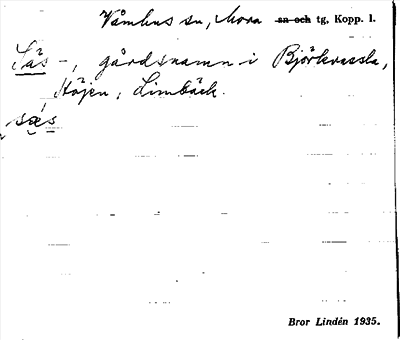 Våmhus sn, Mora ~~sn och~~ tg, Kopp. l.
Säs -, gårdsnamn i Björkvassla,
Höjen, Limbäck.
sæs
Bror Lindén 1935.